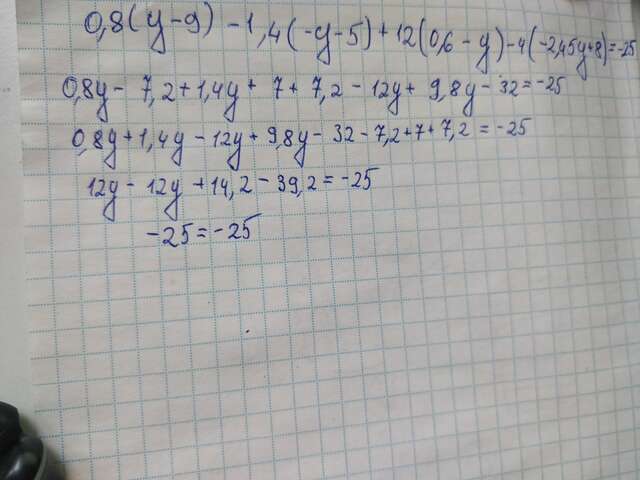 0,8(y-9)-1,4(-y-5)+12(0,6-y)-4(-2,45y+8)=-25
0,8y-7,2+1,4y+7+7,2-12y+9,8y-32=-25
0,8y+1,4y-12y+9,8y-32-7,2+7+7,2=-25
12y-12y+14,2-39,2=-25
-25=-25